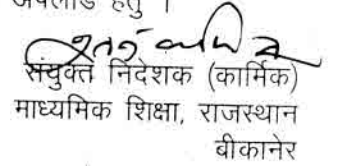 अपलोड हेतु ।
संयुक्त निदेशक (कार्मिक)
माध्यमिक शिक्षा, राजस्थान
बीकानेर